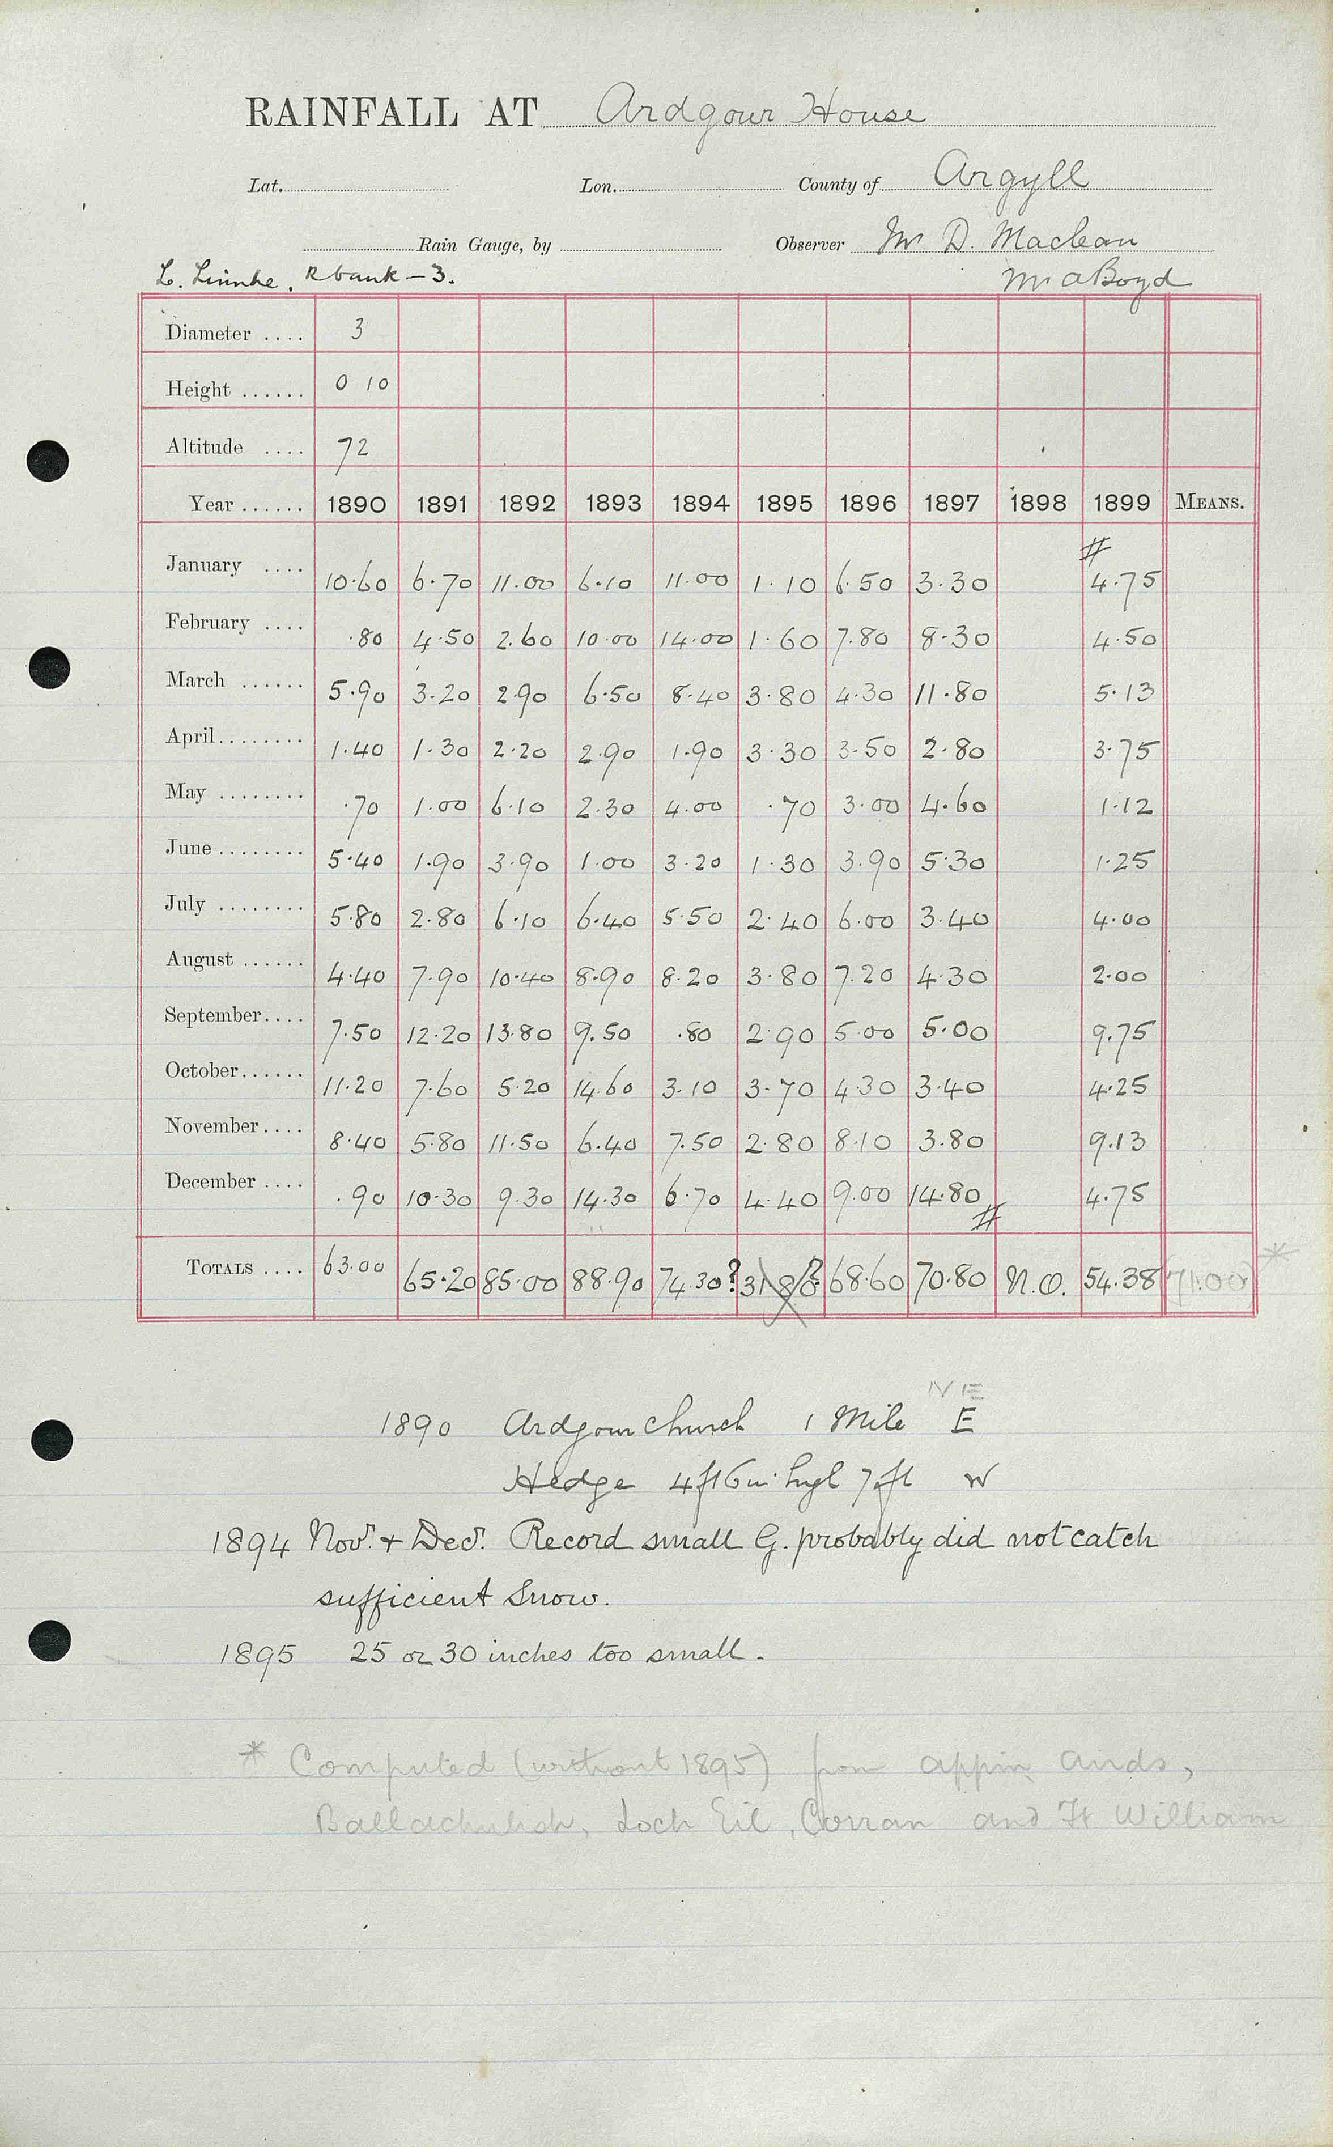 RAINFALL AT Ardgour House
Lat. Lon. County of Argyll
Rain Gauge, by Observer Mr D. Maclean
L. Linnhe, R bank - 3. Mr A Boyd
Diameter .... 3
Height ...... 0 10
Altitude .... 72
Year ...... 1890 1891 1892 1893 1894 1895 1896 1897 1898 1899 MEANS.
#
January .... 10.60 6.70 11.00 6.10 11.00 1.10 6.50 3.30 4.75
February .... .80 4.50 2.60 10.00 14.00 1.60 7.80 8.30 4.50
March ...... 5.90 3.20 2.90 6.50 8.40 3.80 4.30 11.80 5.13
April........ 1.40 1.30 2.20 2.90 1.90 3.30 3.50 2.80 3.75
May ........ .70 1.00 6.10 2.30 4.00 .70 3.00 4.60 1.12
June........ 5.40 1.90 3.90 1.00 3.20 1.30 3.90 5.30 1.25
July ........ 5.80 2.80 6.10 6.40 5.50 2.40 6.00 3.40 4.00
August ...... 4.40 7.90 10.40 8.90 8.20 3.80 7.20 4.30 2.00
September.... 7.50 12.20 13.80 9.50 .80 2.90 5.00 5.00 9.75
October...... 11.20 7.60 5.20 14.60 3.10 3.70 4.30 3.40 4.25
November.... 8.40 5.80 11.50 6.40 7.50 2.80 8.10 3.80 9.13
December .... .90 10.30 9.30 14.30 6.70 4.40 9.00 14.80 4.75
#
TOTALS .... 63.00 65.20 85.00 88.90 74.30? 31.80? 68.60 70.80 N.O. 54.38 71.00 *
NE
1890 Ardgour Church 1 Mile E
Hedge 4ft 6in high 7ft W
1894 Nov. & Dec. Record small G. probably did not catch
sufficient Snow.
1895 25 or 30 inches too small.
* Computed (without 1895) from Appin Ards,
Ballachulish, Loch Eil, Corran and Ft William